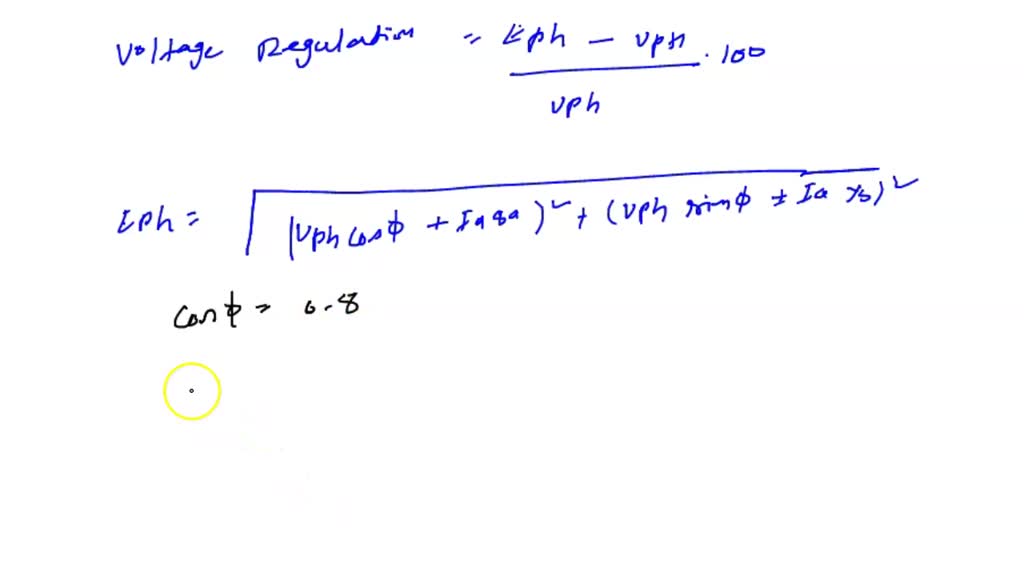 Voltage Regulation = Eph - Vph . 100
Vph
Eph = √ (Vph cosϕ + Ia Ra)² + (Vph sinϕ ± Ia Xs)²
cosϕ = 0.8